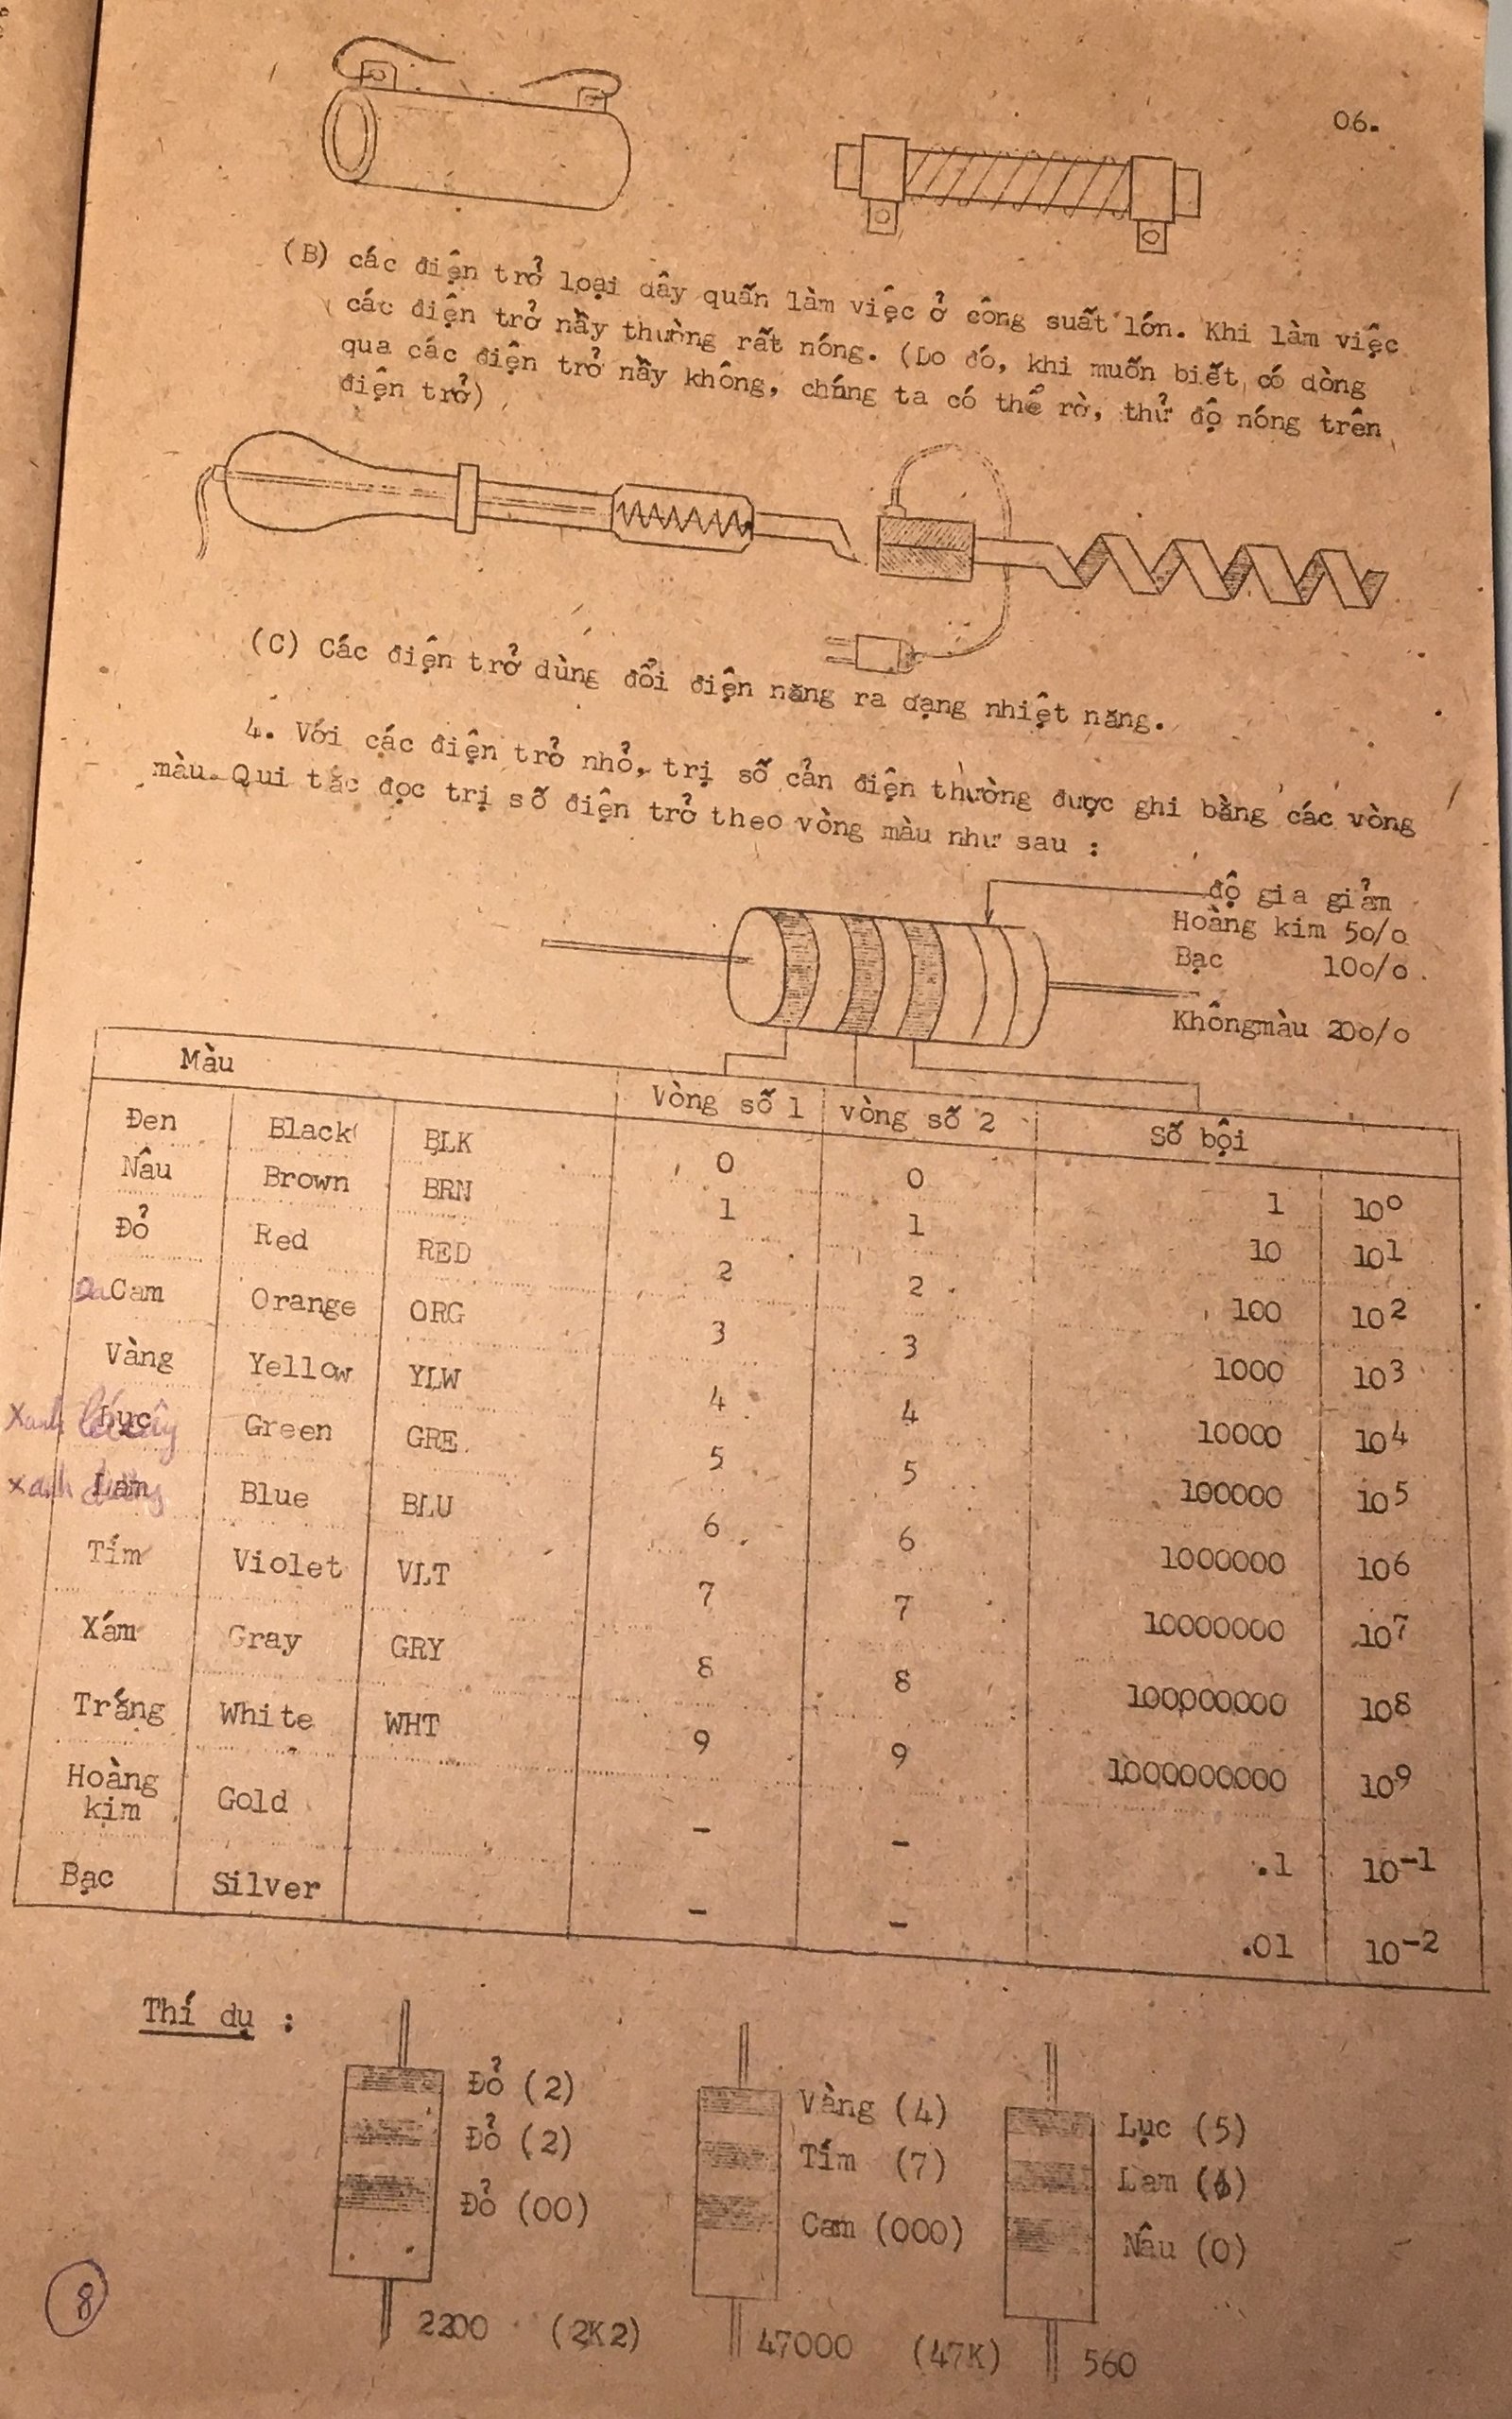 06.
(B) các điện trở loại dây quấn làm việc ở công suất lớn. Khi làm việc
các điện trở nầy thường rất nóng. (Do đó, khi muốn biết có dòng
qua các điện trở nầy không, chúng ta có thể rờ, thử độ nóng trên
điện trở)
(C) Các điện trở dùng đổi điện năng ra dạng nhiệt năng.
4. Với các điện trở nhỏ, trị số cản điện thường được ghi bằng các vòng
màu. Qui tắc đọc trị số điện trở theo vòng màu như sau :
độ gia giảm
Hoàng kim 5o/o
Bạc 10o/o
Không màu 20o/o
Màu Vòng số 1 vòng số 2 Số bội
Đen Black BLK 0 0 1 10⁰
Nâu Brown BRN 1 1 10 10¹
Đỏ Red RED 2 2 100 10²
Da Cam Orange ORG 3 3 1000 10³
Vàng Yellow YLW 4 4 10000 10⁴
Xanh lá cây Lục Green GRE 5 5 100000 10⁵
xanh dương Lam Blue BLU 6 6 1000000 10⁶
Tím Violet VLT 7 7 10000000 10⁷
Xám Gray GRY 8 8 100000000 10⁸
Trắng White WHT 9 9 1000000000 10⁹
Hoàng
kim Gold - - .1 10⁻¹
Bạc Silver - - .01 10⁻²
Thí dụ :
Đỏ (2) Vàng (4) Lục (5)
Đỏ (2) Tím (7) Lam (6)
Đỏ (00) Cam (000) Nâu (0)
2200 (2K2) 47000 (47K) 560
8